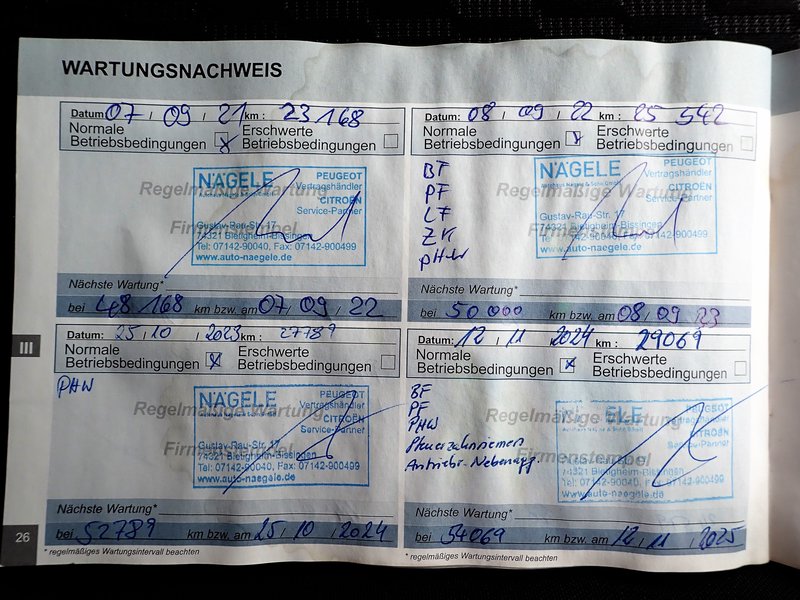 WARTUNGSNACHWEIS
Datum: 07 / 09 / 21 km : 23 168
Normale Betriebsbedingungen x Erschwerte Betriebsbedingungen
Regelmäßige Wartung
Firmenstempel
NÄGELE
PEUGEOT
Vertragshändler
CITROËN
Service-Partner
Gustav-Rau-Str. 17
74321 Bietigheim-Bissingen
Tel: 07142-90040, Fax: 07142-900499
www.auto-naegele.de
Nächste Wartung*
bei 48 168 km bzw. am 07 / 09 / 22
Datum: 08 / 09 / 22 km : 25 542
Normale Betriebsbedingungen x Erschwerte Betriebsbedingungen
BF
PF
LF
ZK
PHW
Regelmäßige Wartung
Firmenstempel
NÄGELE
PEUGEOT
Vertragshändler
CITROËN
Service-Partner
Gustav-Rau-Str. 17
74321 Bietigheim-Bissingen
Tel: 07142-90040, Fax: 07142-900499
www.auto-naegele.de
Nächste Wartung*
bei 50 000 km bzw. am 08 / 09 / 23
III
Datum: 25 / 10 / 2023 km : 27789
Normale Betriebsbedingungen x Erschwerte Betriebsbedingungen
PHW
Regelmäßige Wartung
Firmenstempel
NÄGELE
PEUGEOT
Vertragshändler
CITROËN
Service-Partner
Gustav-Rau-Str. 17
74321 Bietigheim-Bissingen
Tel: 07142-90040, Fax: 07142-900499
www.auto-naegele.de
Nächste Wartung*
bei 52789 km bzw. am 25 / 10 / 2024
* regelmäßiges Wartungsintervall beachten
Datum: 12 / 11 / 2024 km : 29069
Normale Betriebsbedingungen x Erschwerte Betriebsbedingungen
BF
PF
PHW
Steuerzahnriemen
Antriebr. Nebenagg.
Regelmäßige Wartung
Firmenstempel
PEUGEOT
Vertragshändler
CITROËN
Service-Partner
Gustav-Rau-Str. 17
74321 Bietigheim-Bissingen
Tel: 07142-90040, Fax: 07142-900499
www.auto-naegele.de
Nächste Wartung*
bei 54069 km bzw. am 12 / 11 / 2025
* regelmäßiges Wartungsintervall beachten
26